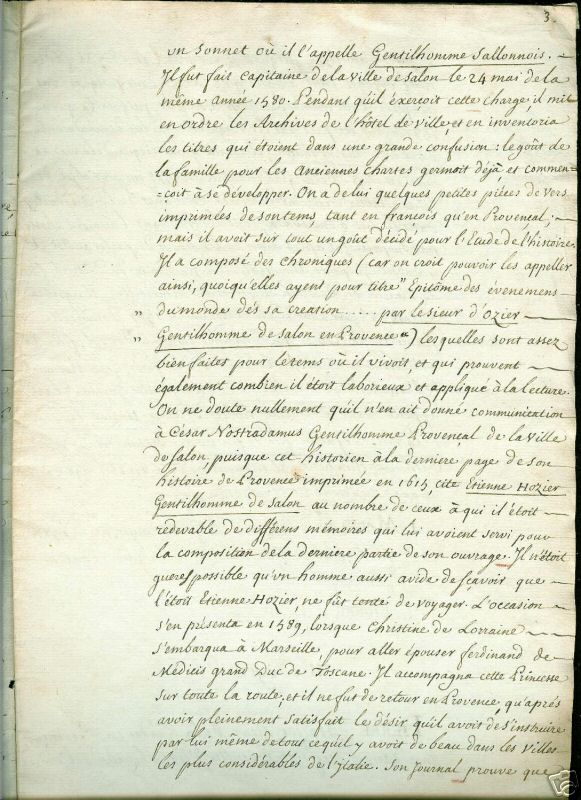 3.
un sonnet où il l'appelle Gentilhomme Sallonnois.
Il fut fait Capitaine de la Ville de Salon le 24 mai de la
même année 1580. Pendant qu'il éxerçoit cette charge, il mit
en ordre les Archives de l'hôtel de Ville, et en inventoria
les titres qui étoient dans une grande confusion : le goût de
la famille pour les Anciennes Chartes germoit déjà, et commen-
=çoit à se développer. On a de lui quelques petites pièces de Vers
imprimées de son tems, tant en françois qu'en Provençal;
mais il avoit sur tout un goût décidé pour l'Etude de l'histoire.
Il a composé des Chroniques (car on croit pouvoir les appeller
ainsi, quoiqu'elles ayent pour titre " Epitôme des évenemens
" du monde dés sa creation ..... par le sieur d'Ozier
" Gentilhomme de Salon en Provence ") lesquelles sont assez
bien faites pour le tems où il vivoit, et qui prouvent
également combien il étoit laborieux et appliqué à la lecture.
On ne doute nullement qu'il n'en ait donné communication
à César Nostradamus Gentilhomme Provençal de la Ville
de Salon, puisque cet historien à la derniere page de son
histoire de Provence imprimée en 1615, cite Etienne Hozier
Gentilhomme de Salon au nombre de ceux à qui il étoit
redevable de différens mémoires qui lui avoient servi pour
la composition de la derniere partie de son ouvrage. Il n'étoit
gueres possible qu'un homme aussi avide de sçavoir que
l'étoit Etienne Hozier, ne fût tenté de voyager. L'occasion
s'en présenta en 1589, lorsque Christine de Lorraine
s'embarqua à Marseille, pour aller épouser ferdinand de
Médicis grand Duc de Toscane. Il accompagna cette Princesse
sur toute la route, et il ne fut de retour en Provence, qu'après
avoir pleinement satisfait le désir qu'il avoit de s'instruire
par lui même de tout ce qu'il y avoit de beau dans les Villes
les plus considérables de l'Italie. Son Journal prouve que